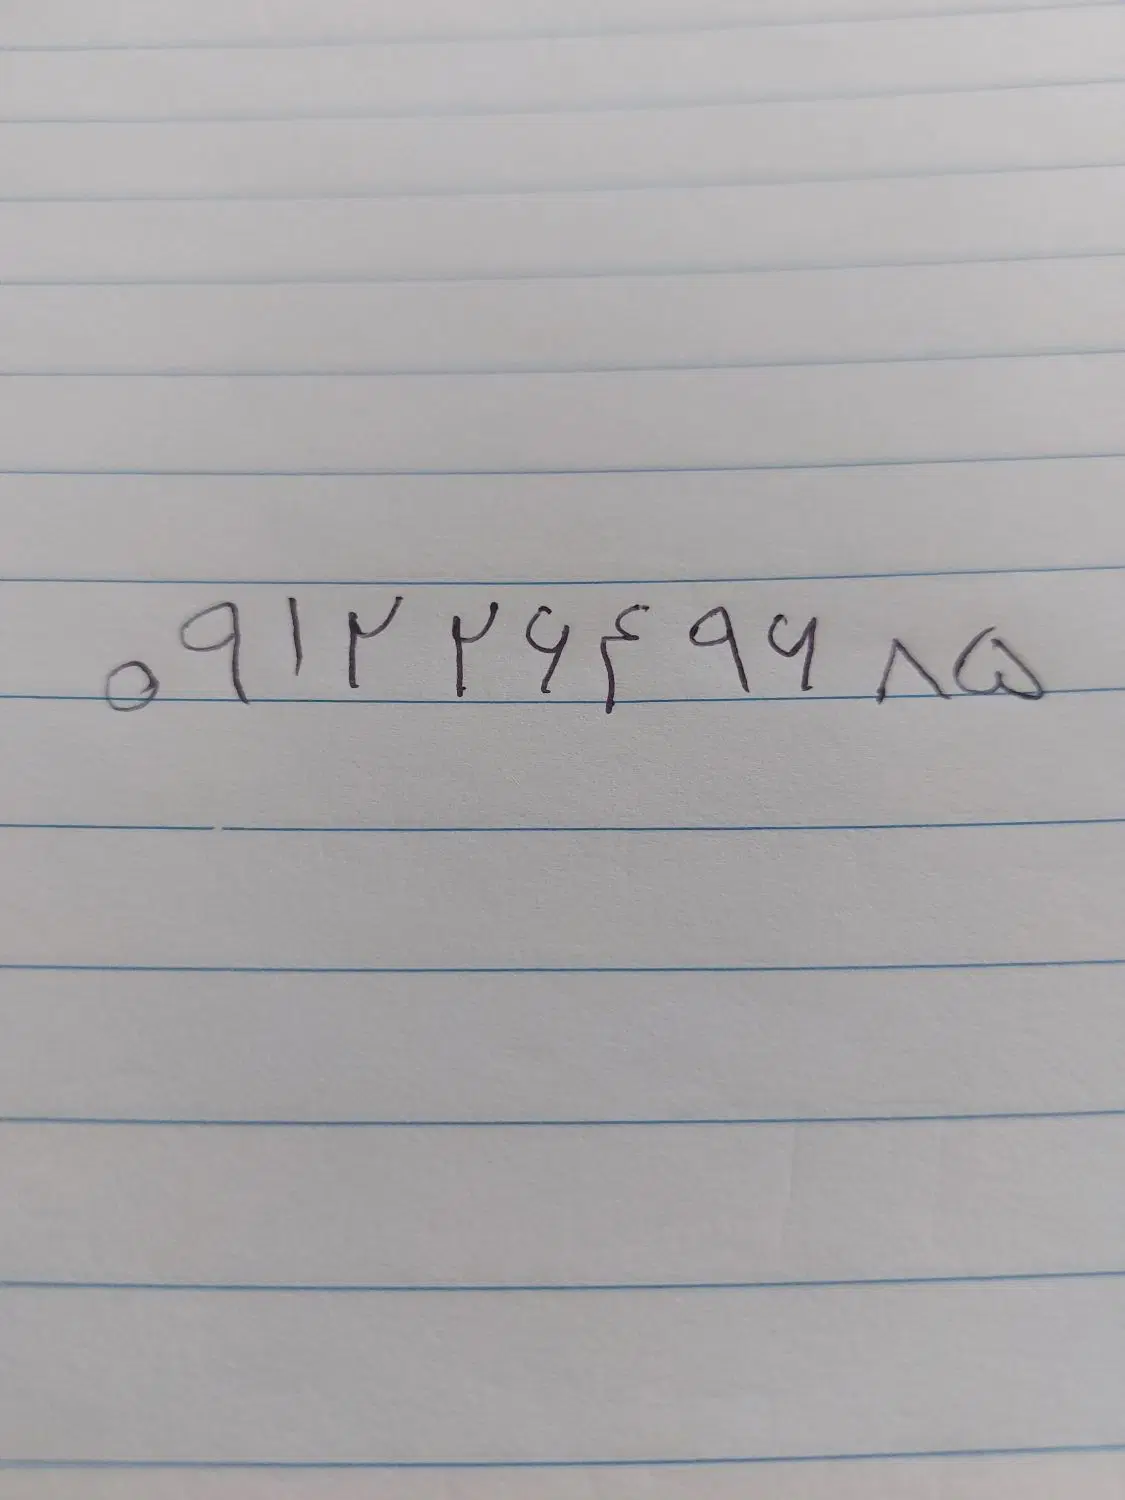 ۰۹۱۲۲۶۴۹۶۸۵